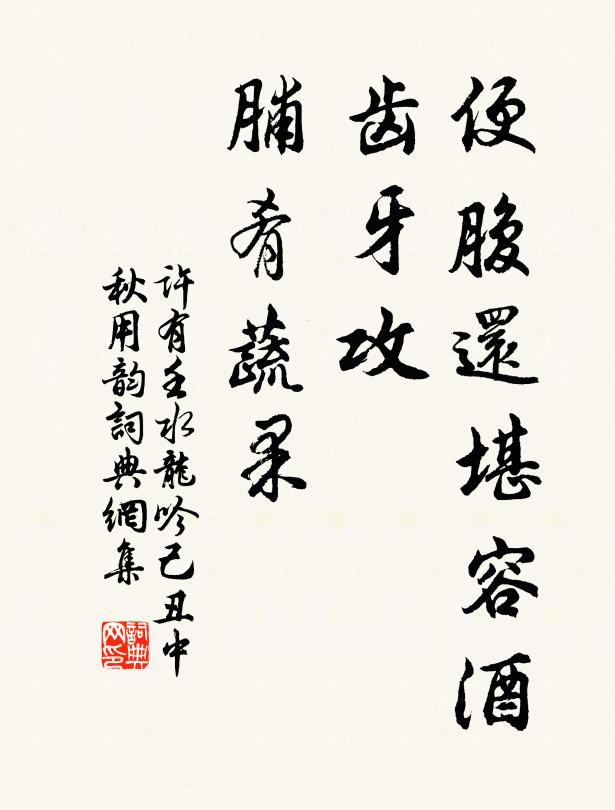 便腹還堪容酒
齿牙攻
脯肴蔬果
许有壬水龍吟己丑中
秋用韵詞典網集
詞典
网印